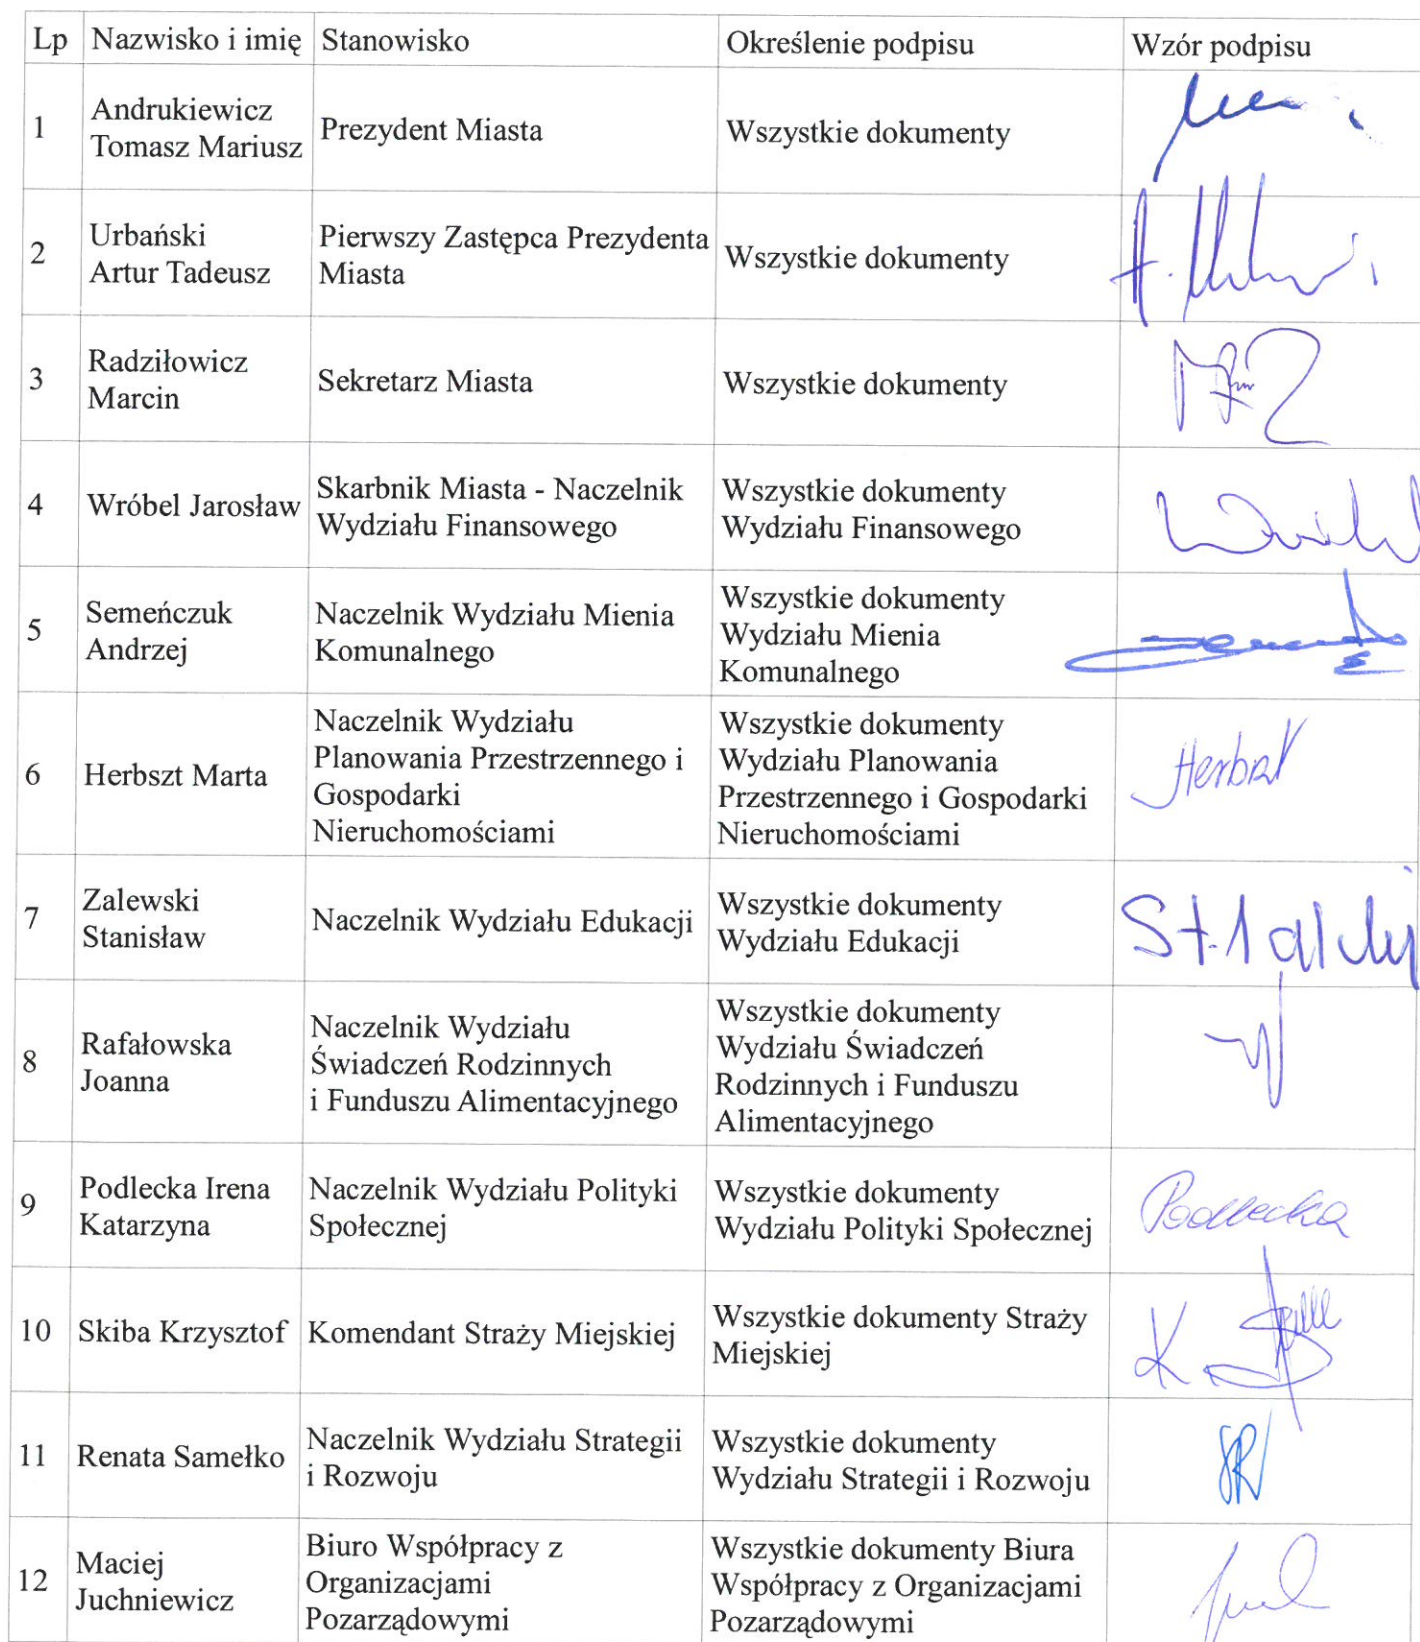 Lp Nazwisko i imię Stanowisko Określenie podpisu Wzór podpisu
1
Andrukiewicz
Tomasz Mariusz
Prezydent Miasta
Wszystkie dokumenty
2
Urbański
Artur Tadeusz
Pierwszy Zastępca Prezydenta
Miasta
Wszystkie dokumenty
3
Radziłowicz
Marcin
Sekretarz Miasta
Wszystkie dokumenty
4
Wróbel Jarosław
Skarbnik Miasta - Naczelnik
Wydziału Finansowego
Wszystkie dokumenty
Wydziału Finansowego
5
Semeńczuk
Andrzej
Naczelnik Wydziału Mienia
Komunalnego
Wszystkie dokumenty
Wydziału Mienia
Komunalnego
6
Herbszt Marta
Naczelnik Wydziału
Planowania Przestrzennego i
Gospodarki
Nieruchomościami
Wszystkie dokumenty
Wydziału Planowania
Przestrzennego i Gospodarki
Nieruchomościami
7
Zalewski
Stanisław
Naczelnik Wydziału Edukacji
Wszystkie dokumenty
Wydziału Edukacji
8
Rafałowska
Joanna
Naczelnik Wydziału
Świadczeń Rodzinnych
i Funduszu Alimentacyjnego
Wszystkie dokumenty
Wydziału Świadczeń
Rodzinnych i Funduszu
Alimentacyjnego
9
Podlecka Irena
Katarzyna
Naczelnik Wydziału Polityki
Społecznej
Wszystkie dokumenty
Wydziału Polityki Społecznej
Podlecka
10
Skiba Krzysztof
Komendant Straży Miejskiej
Wszystkie dokumenty Straży
Miejskiej
11
Renata Samełko
Naczelnik Wydziału Strategii
i Rozwoju
Wszystkie dokumenty
Wydziału Strategii i Rozwoju
12
Maciej
Juchniewicz
Biuro Współpracy z
Organizacjami
Pozarządowymi
Wszystkie dokumenty Biura
Współpracy z Organizacjami
Pozarządowymi